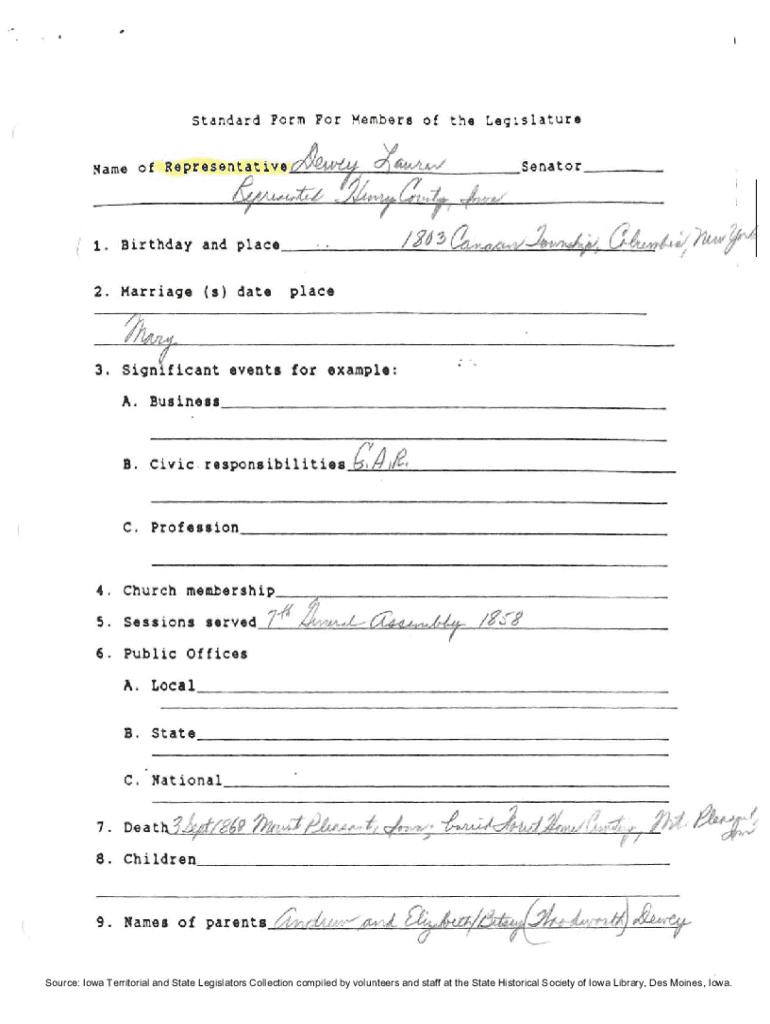 Standard Form For Members of the Legislature
Name of Representative Dewey Lauren Senator
Represented Henry County, Iowa
1. Birthday and place 1803 Canaan Township, Columbia, New York
2. Marriage (s) date place
Mary
3. Significant events for example:
A. Business
B. Civic responsibilities G.A.R.
C. Profession
4. Church membership
5. Sessions served 7th General Assembly 1858
6. Public Offices
A. Local
B. State
C. National
7. Death 3 Sept 1868 Mount Pleasant, Iowa; buried Forest Home Cemetery, Mt. Pleasant, Iowa
8. Children
9. Names of parents Andrew and Elizabeth/Betsey (Woodworth) Dewey
Source: Iowa Territorial and State Legislators Collection compiled by volunteers and staff at the State Historical Society of Iowa Library, Des Moines, Iowa.